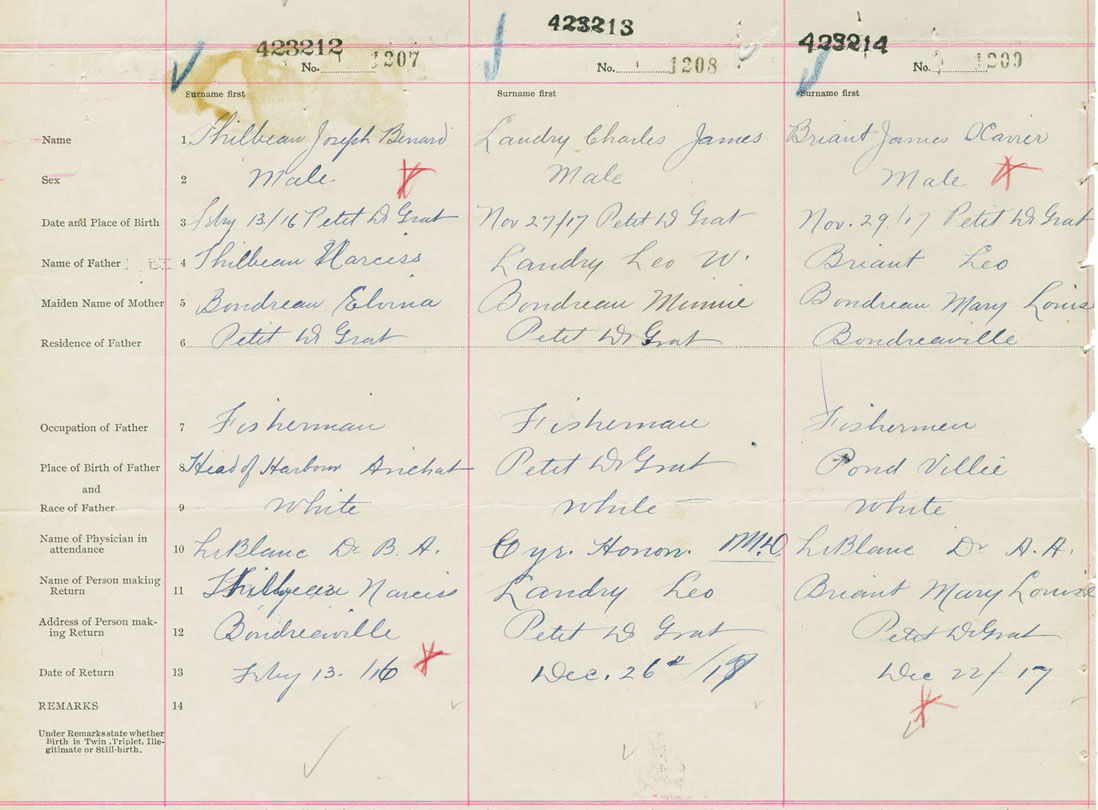 423212 423213 423214
No. 1207 No. 1208 No. 1209
Surname first Surname first Surname first
Name 1 Thilbeau Joseph Benard Landry Charles James Briant James Xavier
Sex 2 Male Male Male
Date and Place of Birth 3 Feby 13/16 Petit De Grat Nov 27/17 Petit De Grat Nov. 29/17 Petit De Grat
Name of Father 4 Thilbeau Narciss Landry Leo W. Briant Leo
Maiden Name of Mother 5 Bondreau Elvina Bondreau Minnie Bondreau Mary Louise
Residence of Father 6 Petit De Grat Petit De Grat Bondreauville
Occupation of Father 7 Fisherman Fisherman Fishermen
Place of Birth of Father 8 Head of Harbour Arichat Petit De Grat Pond Villie
and
Race of Father 9 White White White
Name of Physician in
attendance 10 LeBlanc Dr B. A. Cyr. Honon. M.D. LeBlanc Dr A. A.
Name of Person making
Return 11 Thilbeau Narciss Landry Leo Briant Mary Louise
Address of Person mak-
ing Return 12 Bondreauville Petit De Grat Petit De Grat
Date of Return 13 Feby 13-/16 Dec. 26th/17 Dec 22/17
REMARKS 14
Under Remarks state whether
Birth is Twin, Triplet, Ille-
gitimate or Still-birth.